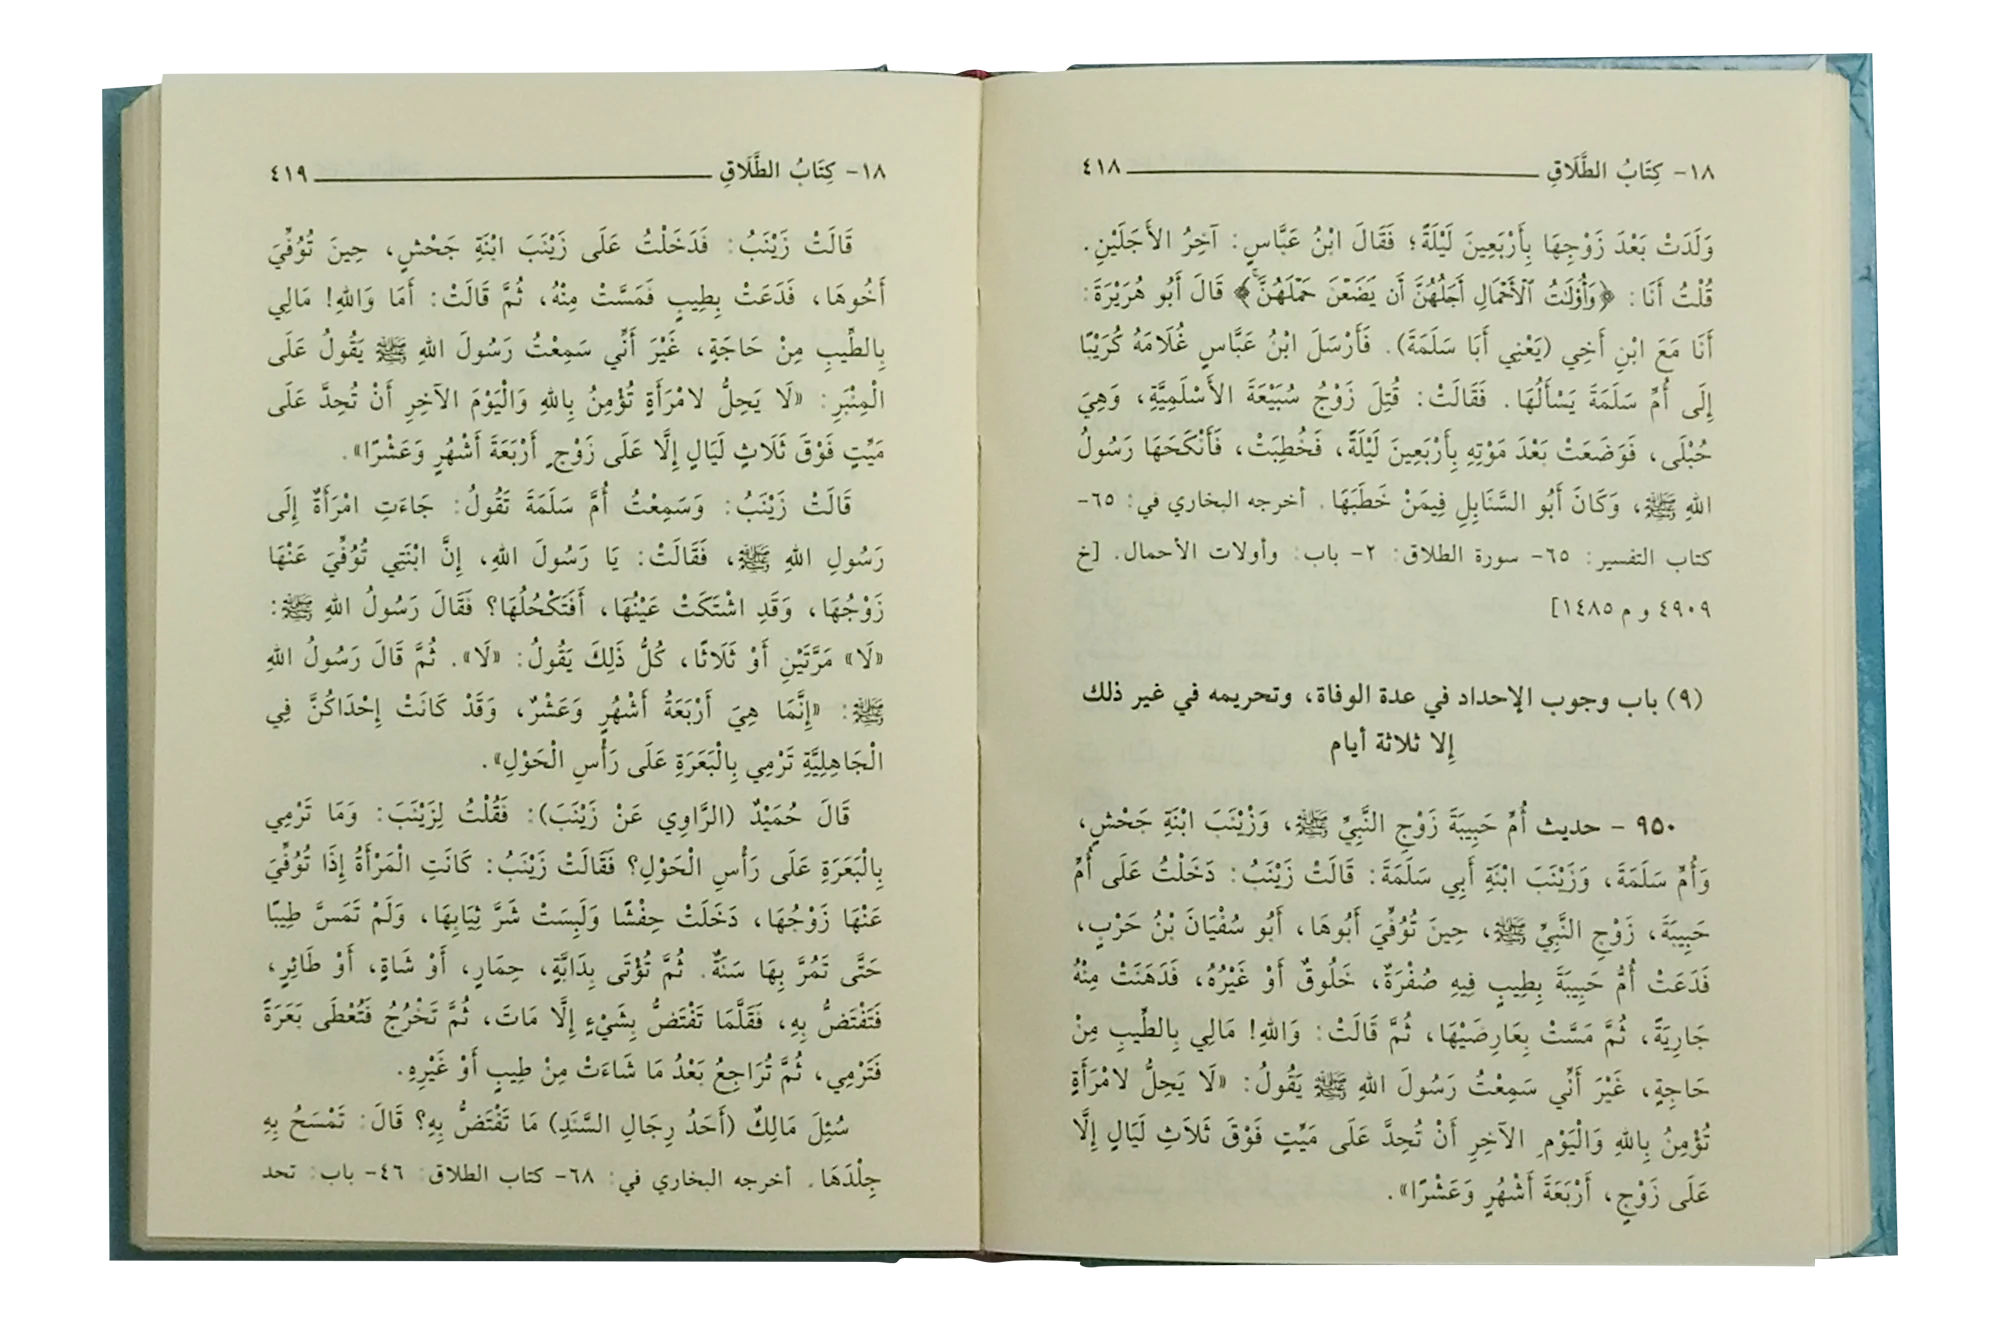 ١٨- كِتَابُ الطَّلَاقِ ٤١٨
وَلَدَتْ بَعْدَ زَوْجِهَا بِأَرْبَعِينَ لَيْلَةً؛ فَقَالَ ابْنُ عَبَّاسٍ: آخِرُ الأَجَلَيْنِ.
قُلْتُ أَنَا: ﴿وَأُوْلَٰتُ ٱلْأَحْمَالِ أَجَلُهُنَّ أَن يَضَعْنَ حَمْلَهُنَّۚ﴾ قَالَ أَبُو هُرَيْرَةَ:
أَنَا مَعَ ابْنِ أَخِي (يَعْنِي أَبَا سَلَمَةَ). فَأَرْسَلَ ابْنُ عَبَّاسٍ غُلَامَهُ كُرَيْبًا
إِلَى أُمِّ سَلَمَةَ يَسْأَلُهَا. فَقَالَتْ: قُتِلَ زَوْجُ سُبَيْعَةَ الأَسْلَمِيَّةِ، وَهِيَ
حُبْلَى، فَوَضَعَتْ بَعْدَ مَوْتِهِ بِأَرْبَعِينَ لَيْلَةً، فَخُطِبَتْ، فَأَنْكَحَهَا رَسُولُ
اللهِ ﷺ، وَكَانَ أَبُو السَّنَابِلِ فِيمَنْ خَطَبَهَا. أخرجه البخاري في: ٦٥-
كتاب التفسير: ٦٥- سورة الطلاق: ٢- باب: وأولات الأحمال. [خ
٤٩٠٩ و م ١٤٨٥]
(٩) باب وجوب الإحداد في عدة الوفاة، وتحريمه في غير ذلك
إلا ثلاثة أيام
٩٥٠ - حديث أُمِّ حَبِيبَةَ زَوْجِ النَّبِيِّ ﷺ، وَزَيْنَبَ ابْنَةِ جَحْشٍ،
وَأُمِّ سَلَمَةَ، وَزَيْنَبَ ابْنَةِ أَبِي سَلَمَةَ: قَالَتْ زَيْنَبُ: دَخَلْتُ عَلَى أُمِّ
حَبِيبَةَ، زَوْجِ النَّبِيِّ ﷺ، حِينَ تُوُفِّيَ أَبُوهَا، أَبُو سُفْيَانَ بْنُ حَرْبٍ،
فَدَعَتْ أُمُّ حَبِيبَةَ بِطِيبٍ فِيهِ صُفْرَةٌ، خَلُوقٌ أَوْ غَيْرُهُ، فَدَهَنَتْ مِنْهُ
جَارِيَةً، ثُمَّ مَسَّتْ بِعَارِضَيْهَا، ثُمَّ قَالَتْ: وَاللهِ! مَالِي بِالطِّيبِ مِنْ
حَاجِةٍ، غَيْرَ أَنِّي سَمِعْتُ رَسُولَ اللهِ ﷺ يَقُولُ: «لَا يَحِلُّ لامْرَأَةٍ
تُؤْمِنُ بِاللهِ وَالْيَوْمِ الآخِرِ أَنْ تُحِدَّ عَلَى مَيِّتٍ فَوْقَ ثَلَاثِ لَيَالٍ إِلَّا
عَلَى زَوْجٍ، أَرْبَعَةَ أَشْهُرٍ وَعَشْرًا».
١٨- كِتَابُ الطَّلَاقِ ٤١٩
قَالَتْ زَيْنَبُ: فَدَخَلْتُ عَلَى زَيْنَبَ ابْنَةِ جَحْشٍ، حِينَ تُوُفِّيَ
أَخُوهَا، فَدَعَتْ بِطِيبٍ فَمَسَّتْ مِنْهُ، ثُمَّ قَالَتْ: أَمَا وَاللهِ! مَالِي
بِالطِّيبِ مِنْ حَاجَةٍ، غَيْرَ أَنِّي سَمِعْتُ رَسُولَ اللهِ ﷺ يَقُولُ عَلَى
الْمِنْبَرِ: «لَا يَحِلُّ لامْرَأَةٍ تُؤْمِنُ بِاللهِ وَالْيَوْمَ الآخِرِ أَنْ تُحِدَّ عَلَى
مَيِّتٍ فَوْقَ ثَلَاثِ لَيَالٍ إِلَّا عَلَى زَوْجٍ أَرْبَعَةَ أَشْهُرٍ وَعَشْرًا».
قَالَتْ زَيْنَبُ: وَسَمِعْتُ أُمَّ سَلَمَةَ تَقُولُ: جَاءَتِ امْرَأَةٌ إِلَى
رَسُولِ اللهِ ﷺ، فَقَالَتْ: يَا رَسُولَ اللهِ، إِنَّ ابْنَتِي تُوُفِّيَ عَنْهَا
زَوْجُهَا، وَقَدِ اشْتَكَتْ عَيْنُهَا، أَفَتَكْحُلُهَا؟ فَقَالَ رَسُولُ اللهِ ﷺ:
«لَا» مَرَّتَيْنِ أَوْ ثَلَاثًا، كُلُّ ذَلِكَ يَقُولُ: «لَا». ثُمَّ قَالَ رَسُولُ اللهِ
ﷺ: «إِنَّمَا هِيَ أَرْبَعَةُ أَشْهُرٍ وَعَشْرٌ، وَقَدْ كَانَتْ إِحْدَاكُنَّ فِي
الْجَاهِلِيَّةِ تَرْمِي بِالْبَعَرَةِ عَلَى رَأْسِ الْحَوْلِ».
قَالَ حُمَيْدٌ (الرَّاوِي عَنْ زَيْنَبَ): فَقُلْتُ لِزَيْنَبَ: وَمَا تَرْمِي
بِالْبَعَرَةِ عَلَى رَأْسِ الْحَوْلِ؟ فَقَالَتْ زَيْنَبُ: كَانَتِ الْمَرْأَةُ إِذَا تُوُفِّيَ
عَنْهَا زَوْجُهَا، دَخَلَتْ حِفْشًا وَلَبِسَتْ شَرَّ ثِيَابِهَا، وَلَمْ تَمَسَّ طِيبًا
حَتَّى تَمُرَّ بِهَا سَنَةٌ. ثُمَّ تُؤْتَى بِدَابَّةٍ، حِمَارٍ، أَوْ شَاةٍ، أَوْ طَائِرٍ،
فَتَفْتَضُّ بِهِ، فَقَلَّمَا تَفْتَضُّ بِشَيْءٍ إِلَّا مَاتَ، ثُمَّ تَخْرُجُ فَتُعْطَى بَعَرَةً
فَتَرْمِي، ثُمَّ تُرَاجِعُ بَعْدُ مَا شَاءَتْ مِنْ طِيبٍ أَوْ غَيْرِهِ.
سُئِلَ مَالِكٌ (أَحَدُ رِجَالِ السَّنَدِ) مَا تَفْتَضُّ بِهِ؟ قَالَ: تَمْسَحُ بِهِ
جِلْدَهَا. أخرجه البخاري في: ٦٨- كتاب الطلاق: ٤٦- باب: تحد